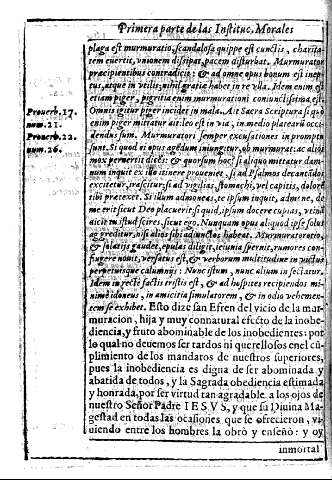 Primera parte de las Instituc. Morales
plaga est murmuratio, scandalosa quippe est cunctis, charita-
tem euertit, unionem dissipat, pacem disturbat. Murmurator
præcipientibus contradicit: & ad omne opus bonum est inep-
tus, atque inutilis, nihil gratiæ habet in re ulla. Idem enim est
etiam piger, pigritia enim murmurationi coniunctissima est,
Omnis igitur piger incidet in mala. Ait Sacra Scriptura si quo
enim piger mittatur ait: leo est in via, in medio platearũ occi-
Prouerb. 17.
num. 21.
Prouerb. 22.
num. 26.
dendus sum. Murmuratori semper excusationes in promptu
sunt. Si quod ei opus agẽdum iniungitur, ob murmurat: ac alios
mox peruertit dicẽs: & quorsum hoc? si aliquo mittatur dam-
num inquit ex isto itinere proueniet, si ad Psalmos decantãdos
excitetur, irascitur, si ad vigilias, stomachi, vel capitis, dolorẽ
tibi pretexet. Si illum admoneas, te ipsum inquit, admone, de
me erit sicut Deo placuerit si quid, ipsum docere cupias, vtinã
sic tu istud scires, sicut ego. Nunquam opus aliquod ipse solus
aggreditur, nisi alios sibi adiunctos habeat. Murmuratores
& solatijs gaudet, epulas diligit, ieiunia spernit, rumores con-
fugere nouit, versatus est, & verborum multitudine in
perpetuisque calumnijs: Nunc istum, nunc alium insectatur.
Idem in recte factis tristis est, & ad hospites recipiendos mi-
nime idoneus, in amicitia simulatorem, & in odio vehemen-
tem se exhibet. Esto dize san Efren del vicio de la mur-
muracion, hija y muy connatural efecto de la inobe-
diencia, y fruto abominable de los inobedientes: por
lo qual no deuemos ser tardos ni querellosos en el cũ-
plimiento de los mandatos de nuestros superiores,
pues la inobediencia es digna de ser abominada y
abatida de todos, y la Sagrada obediencia estimada
y honrada, por ser virtud tan agradable a los ojos de
nuestro Señor Padre IESVS, y que su Diuina Ma-
gestad en todas las ocasiones que se ofrecieron, vi-
uiendo entre los hombres la obrò y enseñò: y oy
inmortal